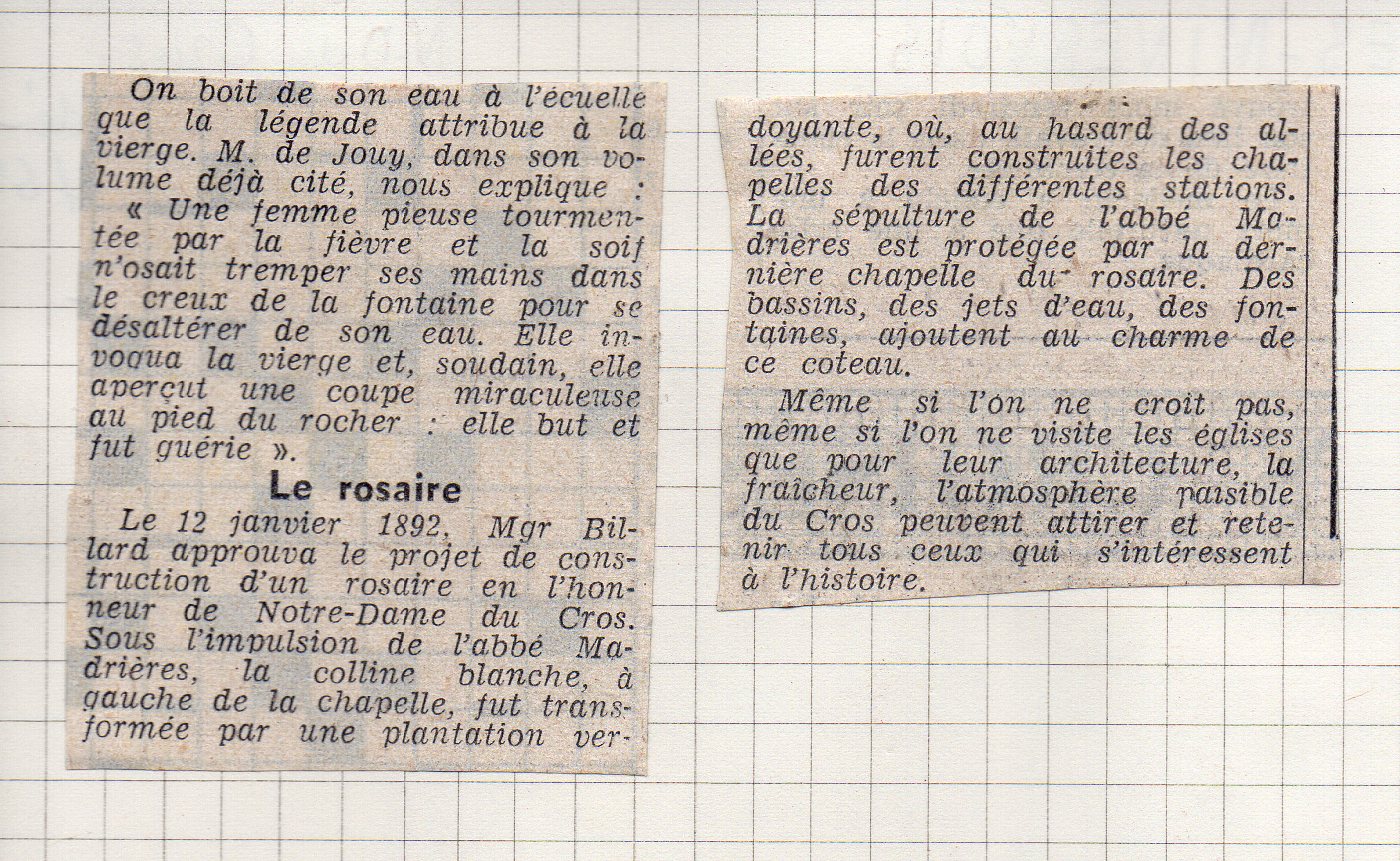 On boit de son eau à l'écuelle
que la légende attribue à la
vierge. M. de Jouy, dans son vo-
lume déjà cité, nous explique :
« Une femme pieuse tourmen-
tée par la fièvre et la soif
n'osait tremper ses mains dans
le creux de la fontaine pour se
désaltérer de son eau. Elle in-
voqua la vierge et, soudain, elle
aperçut une coupe miraculeuse
au pied du rocher : elle but et
fut guérie ».
Le rosaire
Le 12 janvier 1892, Mgr Bil-
lard approuva le projet de cons-
truction d'un rosaire en l'hon-
neur de Notre-Dame du Cros.
Sous l'impulsion de l'abbé Ma-
drières, la colline blanche, à
gauche de la chapelle, fut trans-
formée par une plantation ver-
doyante, où, au hasard des al-
lées, furent construites les cha-
pelles des différentes stations.
La sépulture de l'abbé Ma-
drières est protégée par la der-
nière chapelle du rosaire. Des
bassins, des jets d'eau, des fon-
taines, ajoutent au charme de
ce coteau.
Même si l'on ne croit pas,
même si l'on ne visite les églises
que pour leur architecture, la
fraîcheur, l'atmosphère paisible
du Cros peuvent attirer et rete-
nir tous ceux qui s'intéressent
à l'histoire.